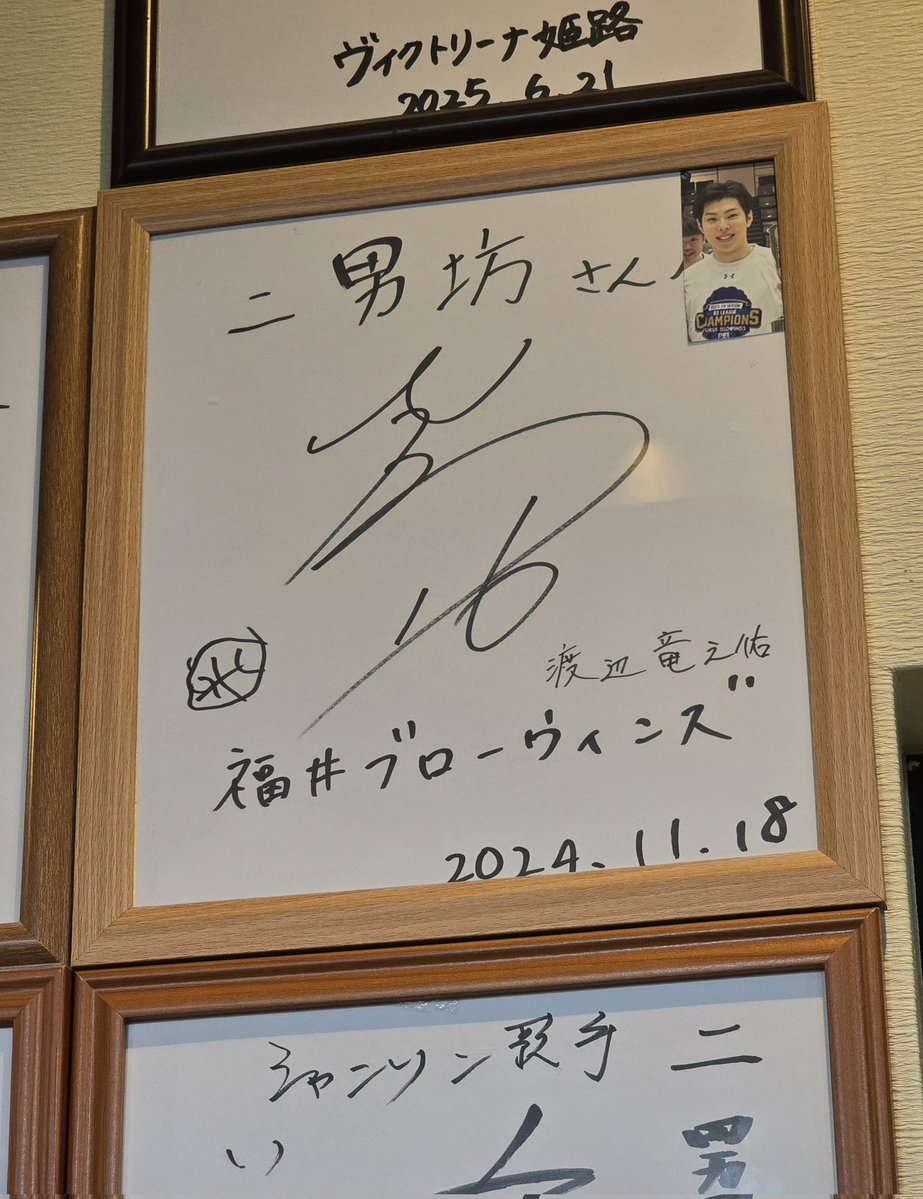 ヴィクトリーナ姫路
2025.6.21
二男坊さん
CHAMPIONS
渡辺竜之佑
福井ブローウィンズ
2024.11.18
シャンリン選手
二男
い